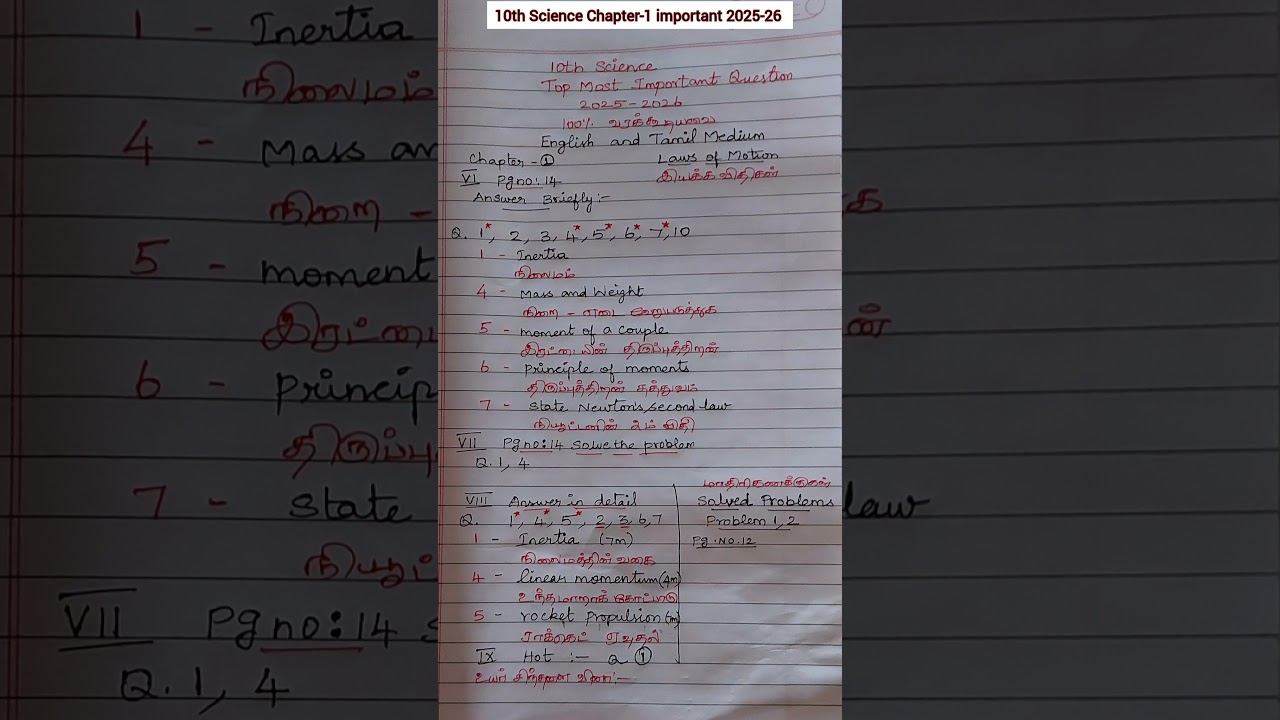 10th Science Chapter-1 important 2025-26
10th Science
Top Most Important Question
2025-2026
100% வரக்கூடியவை
English and Tamil Medium
Chapter - ① Laws of Motion
இயக்க விதிகள்
VI Pg no: 14
Answer Briefly:-
Q. 1*, 2, 3, 4*, 5*, 6*, 7*, 10
1 - Inertia
நிலைமம்
4 - Mass and Weight
நிறை - எடை வேறுபடுத்துக
5 - moment of a couple
இரட்டையின் திருப்புத்திறன்
6 - Principle of moments
திருப்புத்திறன் தத்துவம்
7 - State Newton's second law
நியூட்டனின் 2ம் விதி
VII Pg no: 14 Solve the problem
Q. 1, 4
VIII Answer in detail
Q. 1*, 4*, 5*, 2, 3, 6, 7
1 - Inertia (7m)
நிலைமத்தின் வகை
4 - linear momentum (4m)
உந்தமாறாக் கோட்பாடு
5 - rocket Propulsion
ராக்கெட் ஏவுதல்
IX Hot :- Q ①
உயர் சிந்தனை வினா:-
மாதிரிகணக்குகள்
Solved Problems
Problem 1, 2
Pg. No. 12